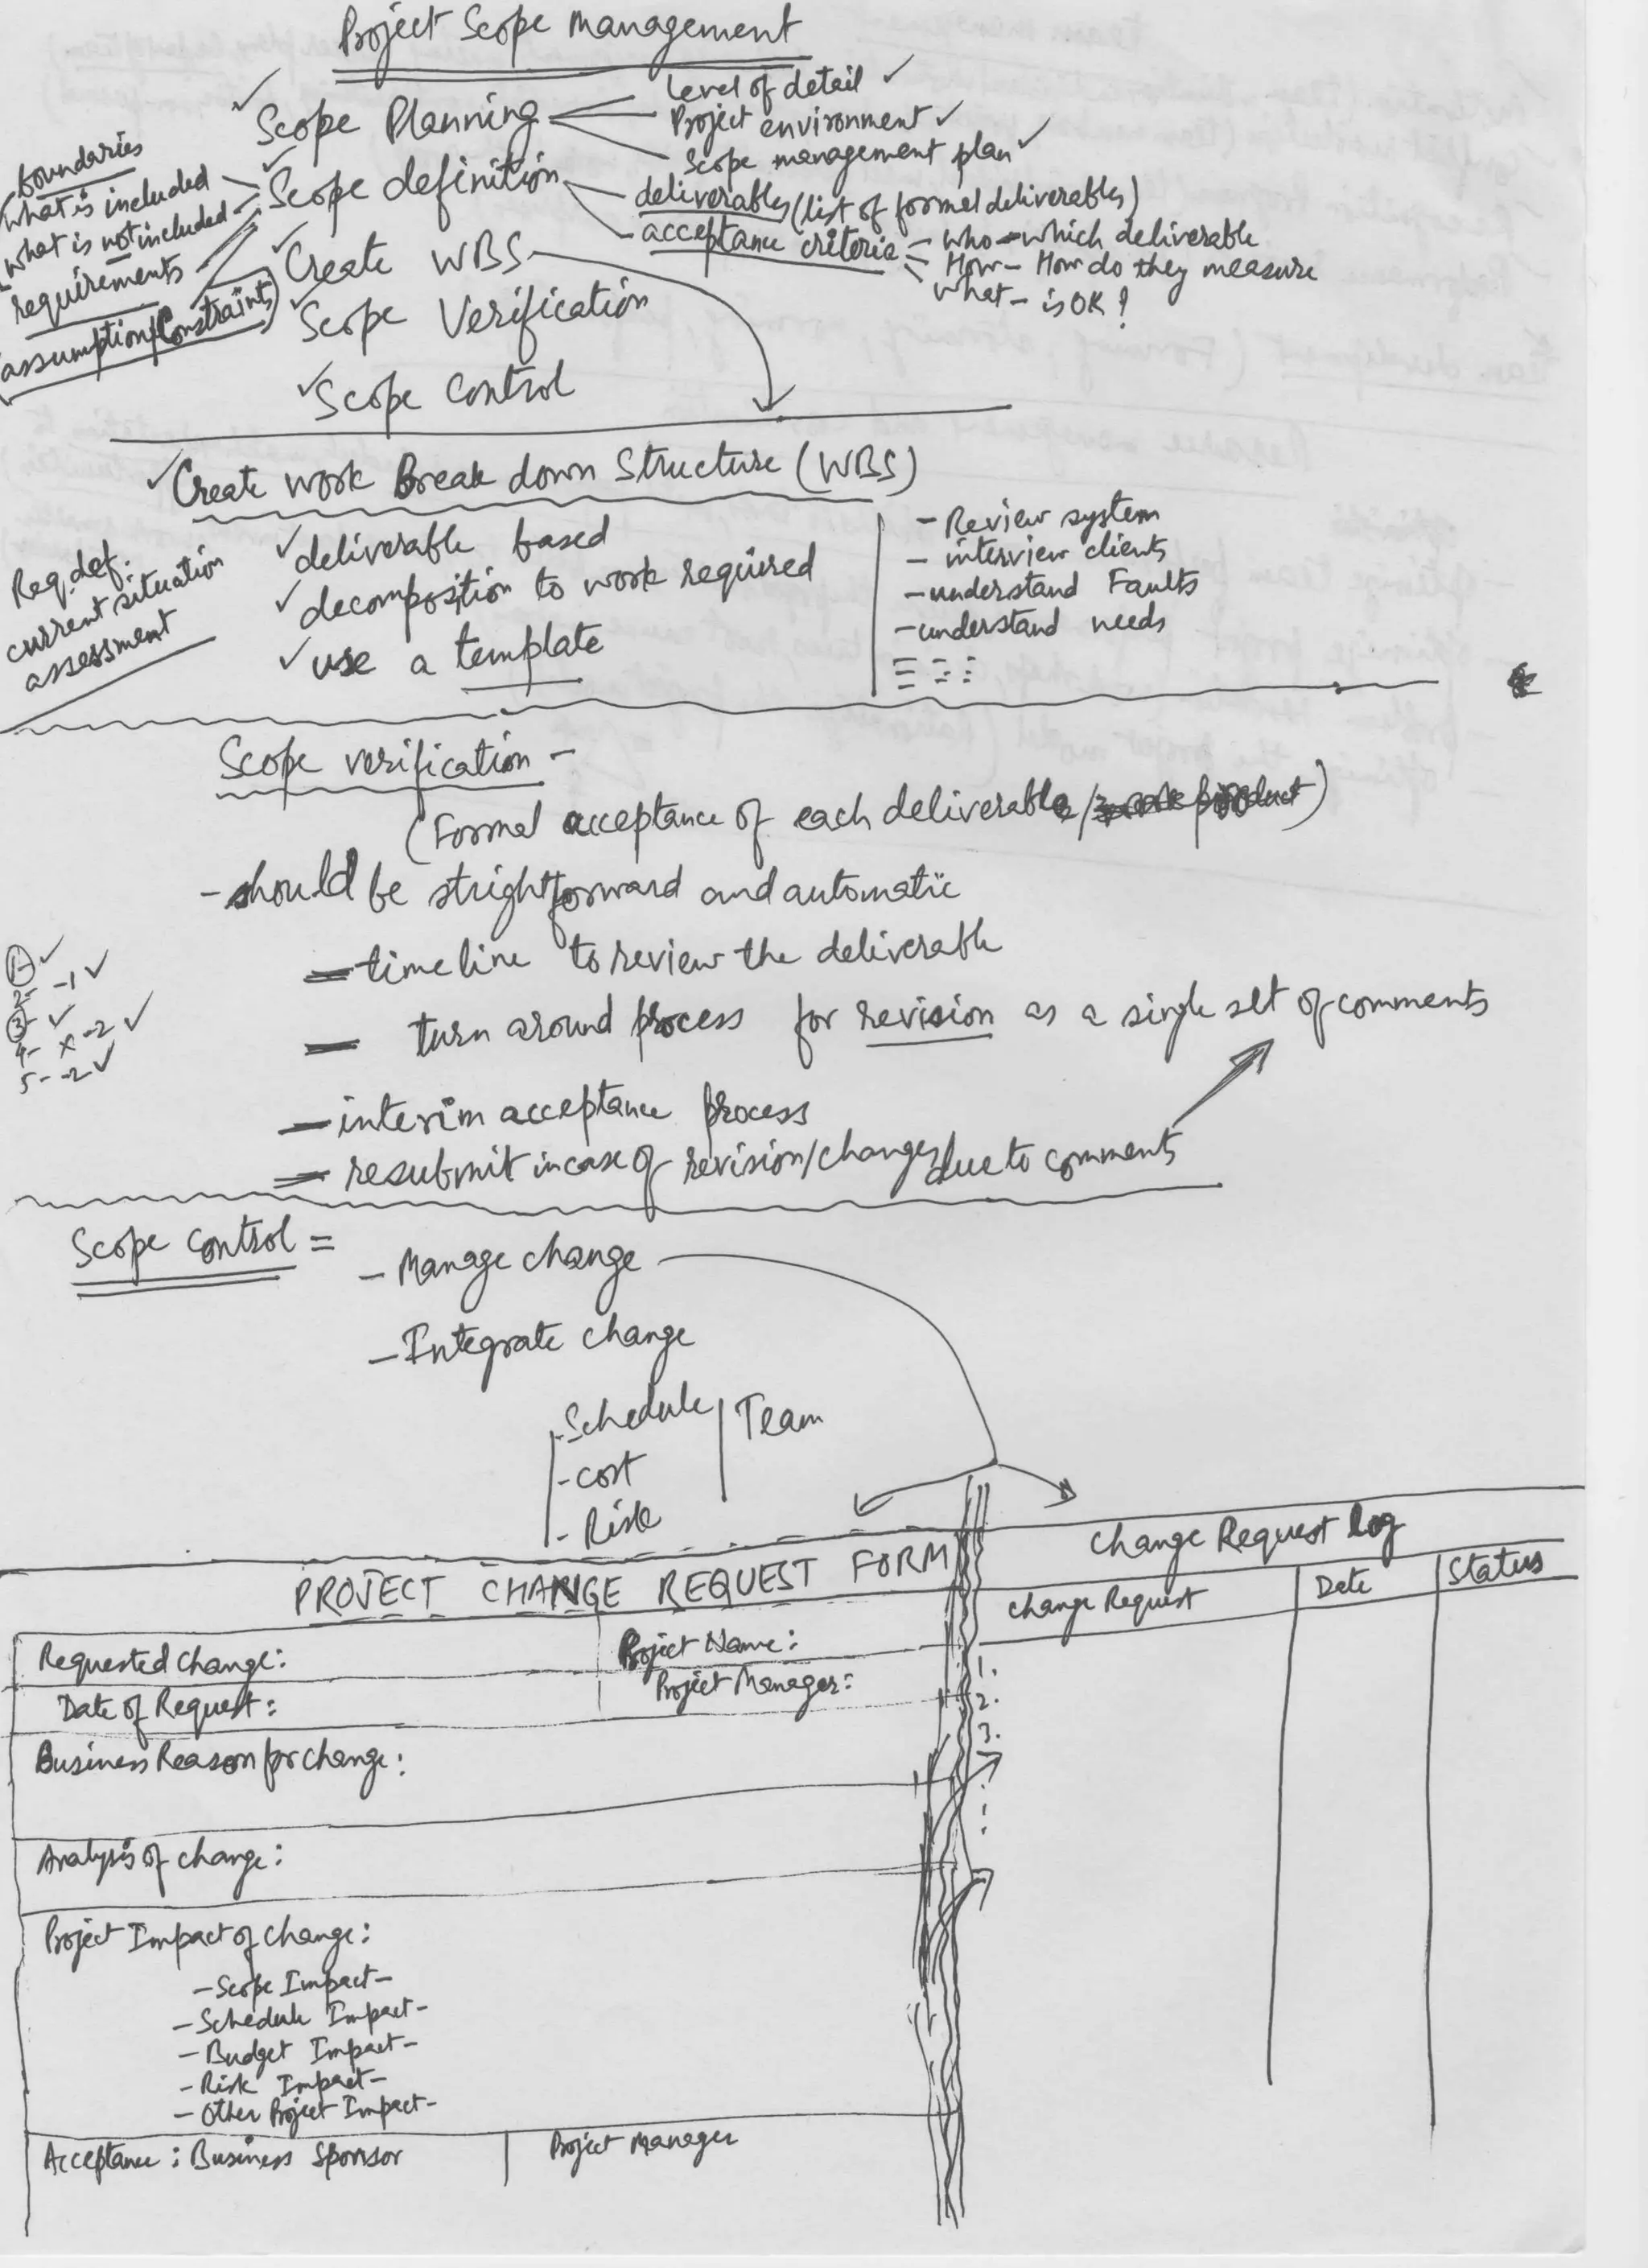 Project Scope Management
✓ Scope Planning
Level of detail ✓
Project environment ✓
Scope management plan ✓
boundaries
what is included
what is not included
requirements
(assumption/Constraints)
✓ Scope definition
deliverables (list of formal deliverables)
acceptance criteria
- who - which deliverable
- How - How do they measure
what - is OK?
✓ Create WBS
✓ Scope Verification
✓ Scope Control
✓ Create work Break down Structure (WBS)
Req. def.
current situation
assessment
✓ deliverable based
✓ decomposition to work required
✓ use a template
- Review system
- interview clients
- understand Faults
- understand needs
Scope verification -
(Formal acceptance of each deliverable/work product)
- should be strightforward and automatic
- timeline to review the deliverable
- turn around process for revision as a single set of comments
- interim acceptance process
- resubmit in case of revision/changes due to comments
1- ✓
2- -1 ✓
3- ✓
4- x -2 ✓
5- -2 ✓
Scope Control =
- Manage change
- Integrate change
- Schedule
- cost
- Risk
Team
PROJECT CHANGE REQUEST FORM
Requested Change:
Project Name:
Date of Request:
Project Manager:
Business Reason for change:
Analysis of change:
Project Impact of change:
- Scope Impact -
- Schedule Impact -
- Budget Impact -
- Risk Impact -
- Other Project Impact -
Acceptance: Business Sponsor
Project Manager
Change Request log
Change Request
Date
Status
1.
2.
3.